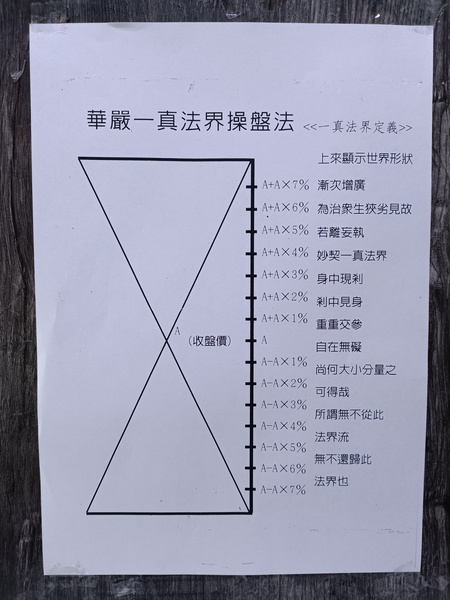 華嚴一真法界操盤法 <<一真法界定義>>
上來顯示世界形狀
A+A×7% 漸次增廣
A+A×6% 為治衆生狹劣見故
A+A×5% 若離妄執
A+A×4% 妙契一真法界
A+A×3% 身中現剎
A+A×2% 剎中見身
A+A×1% 重重交參
A (收盤價) A 自在無礙
A−A×1% 尚何大小分量之
A−A×2% 可得哉
A−A×3% 所謂無不從此
A−A×4% 法界流
A−A×5% 無不還歸此
A−A×6% 法界也
A−A×7%